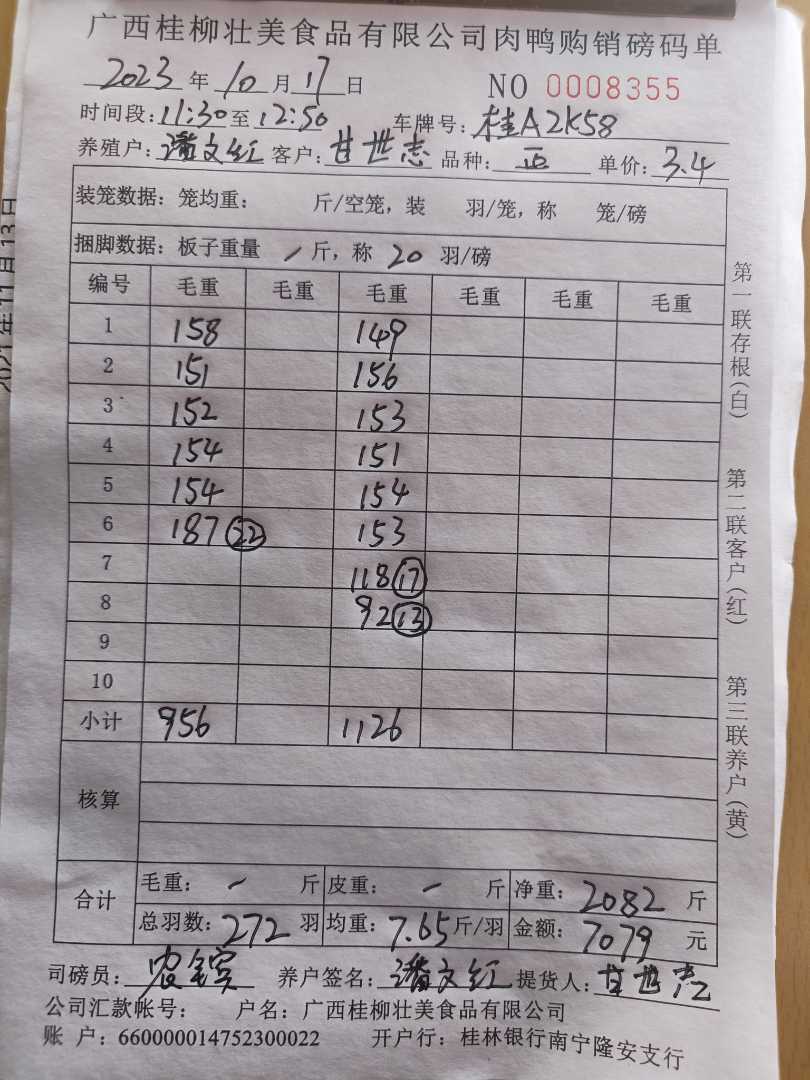 广西桂柳壮美食品有限公司肉鸭购销磅码单
2023年10月17日 NO 0008355
时间段:11:30至12:50 车牌号:桂A2K58
养殖户:潘文红 客户:甘世志 品种:正 单价:3.4
装笼数据：笼均重： 斤/空笼，装 羽/笼，称 笼/磅
捆脚数据：板子重量 / 斤，称 20 羽/磅
编号 毛重 毛重 毛重 毛重 毛重 毛重
1 158 149
2 151 156
3 152 153
4 154 151
5 154 154
6 187 (22) 153
7 118 (17)
8 92 (13)
9
10
小计 956 1126
核算
合计 毛重： - 斤 皮重： - 斤 净重：2082 斤
总羽数：272 羽 均重：7.65 斤/羽 金额：7079 元
司磅员： 养户签名：潘文红 提货人：甘世志
公司汇款帐号： 户名：广西桂柳壮美食品有限公司
账 户：660000014752300022 开户行：桂林银行南宁隆安支行
第一联存根(白)
第二联客户(红)
第三联养户(黄)